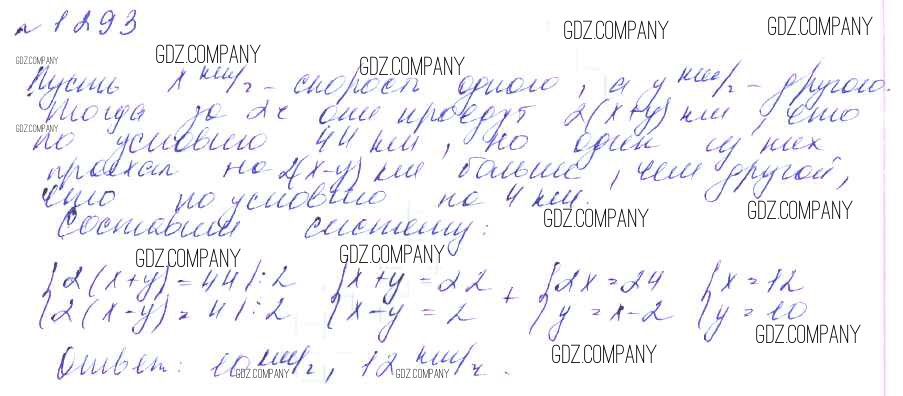 № 1293
Пусть x км/ч - скорость одного, а y км/ч - другого.
Тогда за 2ч они проедут 2(x+y) км, что
по условию 44 км, но один из них
проехал на 2(x-y) км больше, чем другой,
что по условию на 4 км.
Составим систему:
{2(x+y)=44 |:2 {x+y=22 + {2x=24 {x=12
{2(x-y)=4 |:2 {x-y=2 {y=x-2 {y=10
Ответ: 10 км/ч, 12 км/ч.
GDZ.COMPANY
GDZ.COMPANY
GDZ.COMPANY
GDZ.COMPANY
GDZ.COMPANY
GDZ.COMPANY
GDZ.COMPANY
GDZ.COMPANY
GDZ.COMPANY
GDZ.COMPANY
GDZ.COMPANY
GDZ.COMPANY
GDZ.COMPANY
GDZ.COMPANY